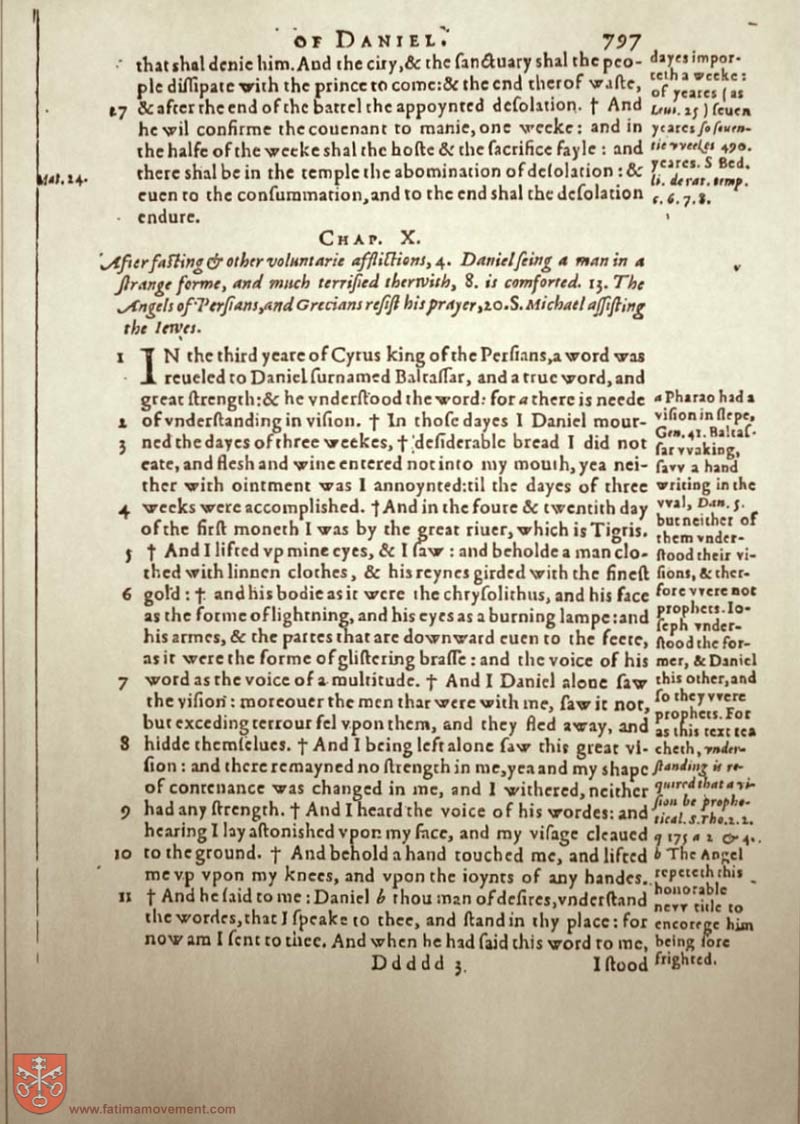 OF DANIEL. 797
that shal denie him. And the city, & the sanctuary shal the peo-
ple dissipate with the prince to come: & the end therof waste,
27 & after the end of the battel the appoynted desolation. † And
he wil confirme the couenant to manie, one weeke: and in
the halfe of the weeke shal the hoste & the sacrifice fayle: and
there shal be in the temple the abomination of desolation: &
euen to the consummation, and to the end shal the desolation
endure.
Mat. 24.
dayes impor-
teth a weeke:
of yeares (as
Leui. 25) seuen
yeares so seuen-
tie vveekes 490.
yeares. S Bed.
li. de rat. temp.
c. 6. 7. 8.
CHAP. X.
After fasting & other voluntarie afflictions, 4. Daniel seing a man in a
strange forme, and much terrified therwith, 8. is comforted. 13. The
Angels of Persians, and Grecians resist his prayer, 20. S. Michael assisting
the Iewes.
1 IN the third yeare of Cyrus king of the Persians, a word was
reueled to Daniel surnamed Baltassar, and a true word, and
great strength: & he vnderstood the word: for a there is neede
2 of vnderstanding in vision. † In those dayes I Daniel mour-
3 ned the dayes of three weekes, † desiderable bread I did not
eate, and flesh and wine entered not into my mouth, yea nei-
ther with ointment was I annoynted: til the dayes of three
4 weeks were accomplished. † And in the foure & twentith day
of the first moneth I was by the great riuer, which is Tigris.
5 † And I lifted vp mine eyes, & I saw: and beholde a man clo-
thed with linnen clothes, & his reynes girded with the finest
6 gold: † and his bodie as it were the chrysolithus, and his face
as the forme of lightning, and his eyes as a burning lampe: and
his armes, & the partes that are downward euen to the feete,
as it were the forme of glistering brasse: and the voice of his
7 word as the voice of a multitude. † And I Daniel alone saw
the vision: moreouer the men that were with me, saw it not,
but exceding terrour fel vpon them, and they fled away, and
8 hidde themselues. † And I being left alone saw this great vi-
sion: and there remayned no strength in me, yea and my shape
of contenance was changed in me, and I withered, neither
9 had any strength. † And I heard the voice of his wordes: and
hearing I lay astonished vpon my face, and my visage cleaued
10 to the ground. † And behold a hand touched me, and lifted
me vp vpon my knees, and vpon the ioynts of any handes.
11 † And he said to me: Daniel b thou man of desires, vnderstand
the wordes, that I speake to thee, and stand in thy place: for
now am I sent to thee. And when he had said this word to me,
Ddddd 3. I stood
a Pharao had a
vision in slepe,
Gen. 41. Baltas-
sar vvaking,
savv a hand
writing in the
vval, Dan. 5.
but neither of
them vnder-
stood their vi-
sions, & ther-
fore vvere not
prophets. Io-
seph vnder-
stood the for-
mer, & Daniel
this other, and
so they vvere
prophets. For
as this text tea
cheth, vnder-
standing is re-
quired that a vi-
sion be prophe-
tical. S. Tho. 2. 2.
q 175 a 2 & 4.
b The Angel
repeteth this
honorable
nevv title to
encorege him
being sore
frighted.
www.fatimamovement.com